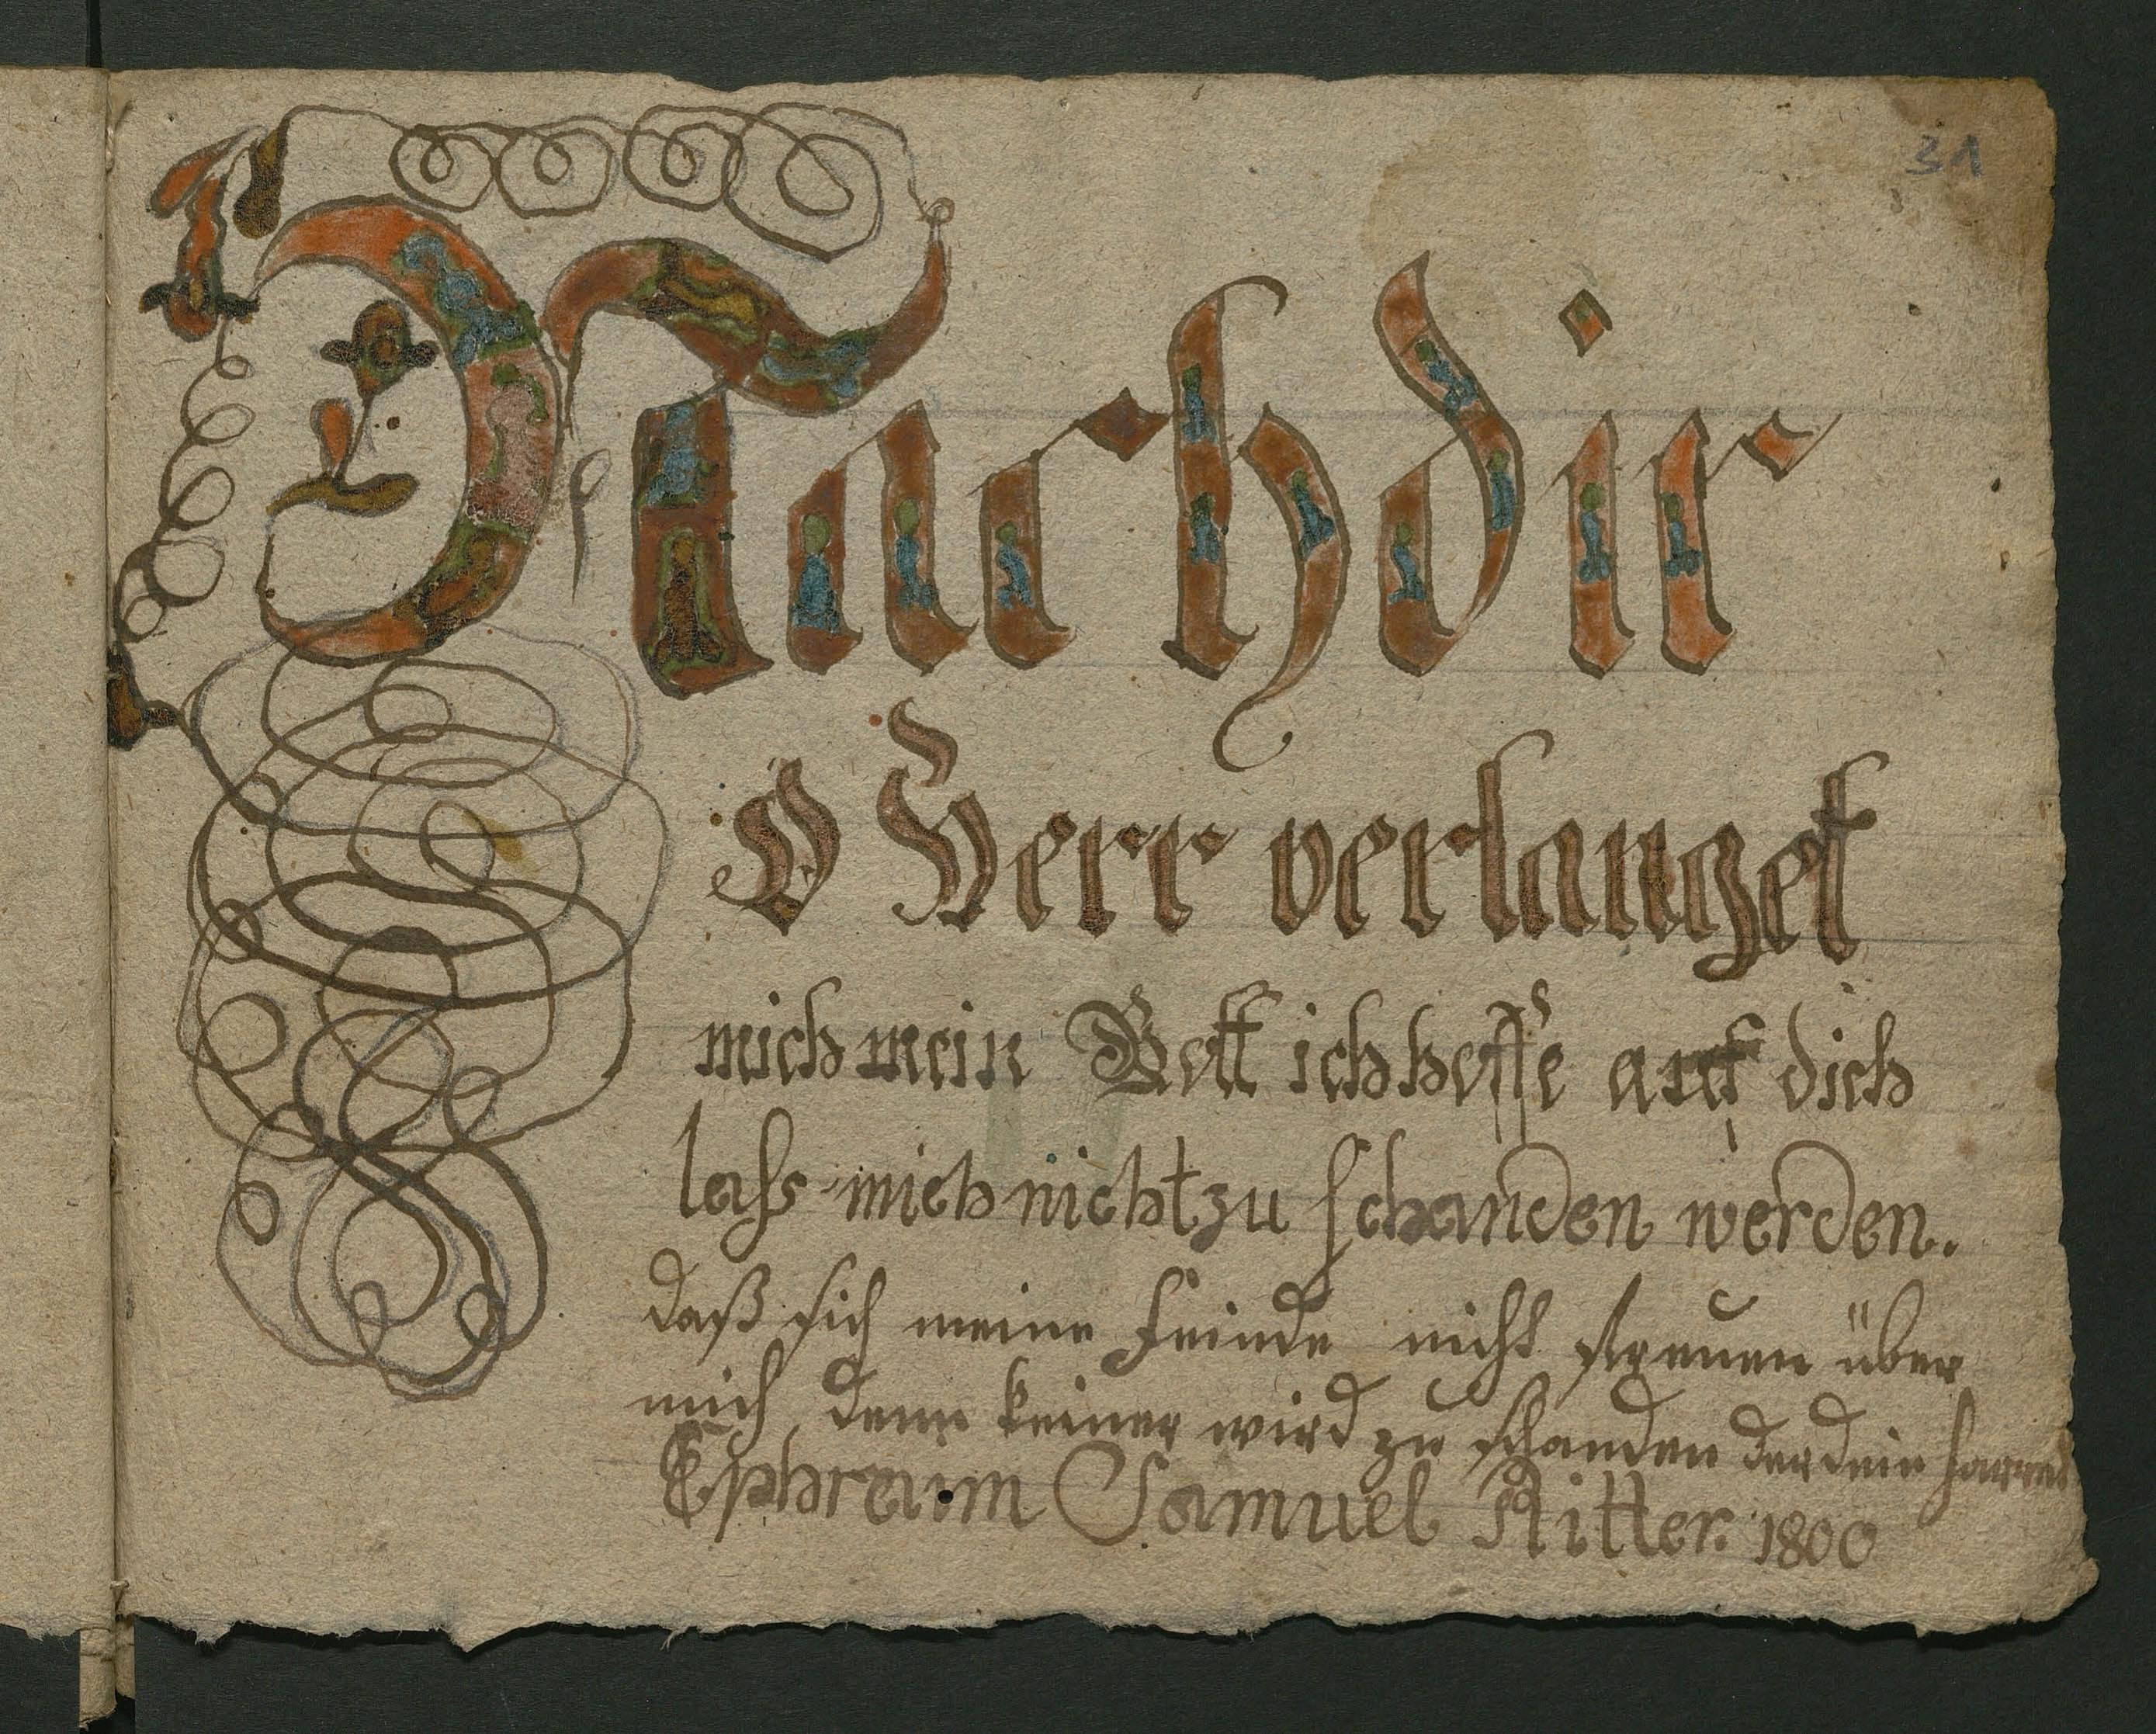 31
Nach dir
O Herr verlanget
mich mein Gott ich hoffe auf dich
lass mich nicht zu schanden werden.
daß sich meine Feinde nicht freuen über
mich, denn keiner wird zu schanden der dein harret
Ephreaim Samuel Ritter. 1800